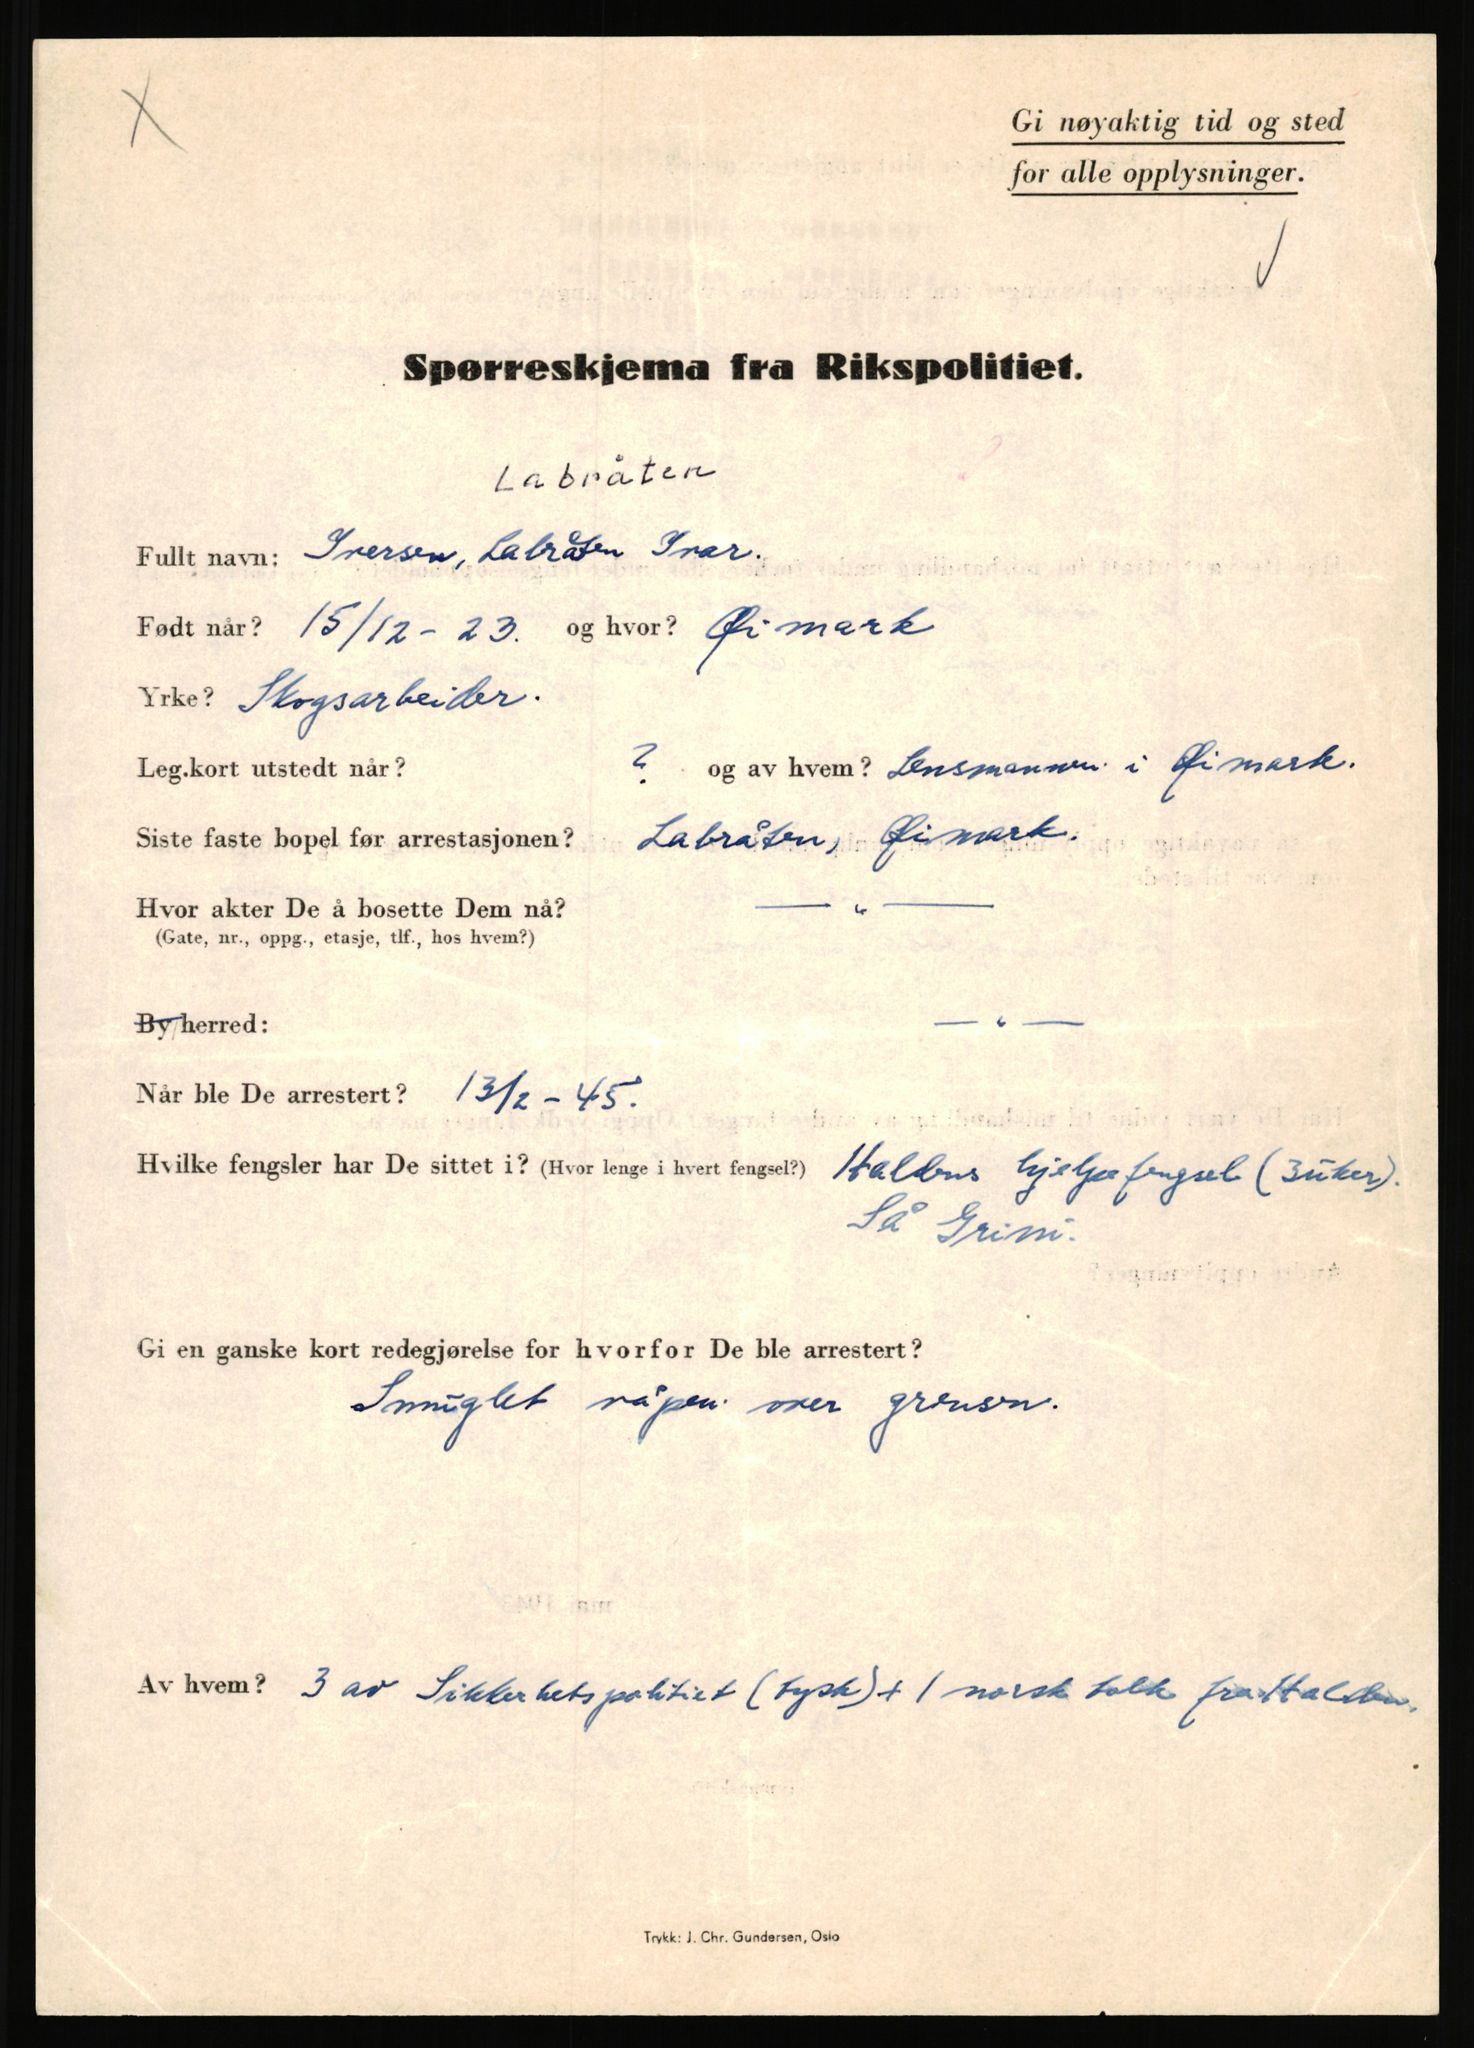 Gi nøyaktig tid og sted
for alle opplysninger.
Spørreskjema fra Rikspolitiet.
Labråten
Fullt navn: Iversen, Labråten Ivar.
Født når? 15/12 - 23. og hvor? Øimark
Yrke? Skogsarbeider.
Leg.kort utstedt når? ? og av hvem? Lensmannen i Øimark.
Siste faste bopel før arrestasjonen? Labråten, Øimark.
Hvor akter De å bosette Dem nå? — " —
(Gate, nr., oppg., etasje, tlf., hos hvem?)
By/herred: — " —
Når ble De arrestert? 13/2 - 45.
Hvilke fengsler har De sittet i? (Hvor lenge i hvert fengsel?) Haldens hjelpefengsel (3 uker).
Så Grini.
Gi en ganske kort redegjørelse for hvorfor De ble arrestert?
Smuglet våpen over grensen.
Av hvem? 3 av Sikkerhetspolitiet (tysk) + 1 norsk tolk fra Halden.
Trykk: J. Chr. Gundersen, Oslo